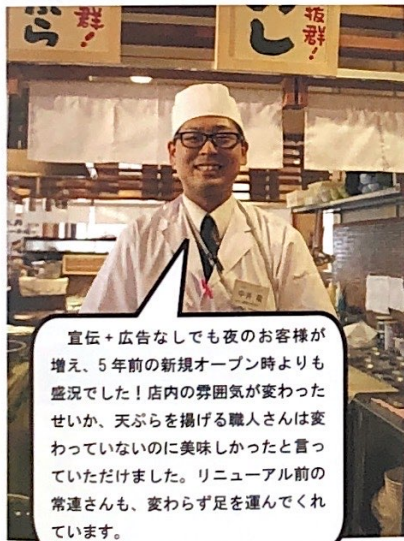 抜群!
ぷら
抜群!
めし
中井
宣伝+広告なしでも夜のお客様が
増え、5年前の新規オープン時よりも
盛況でした!店内の雰囲気が変わった
せいか、天ぷらを揚げる職人さんは変
わっていないのに美味しかったと言っ
ていただけました。リニューアル前の
常連さんも、変わらず足を運んでくれ
ています。